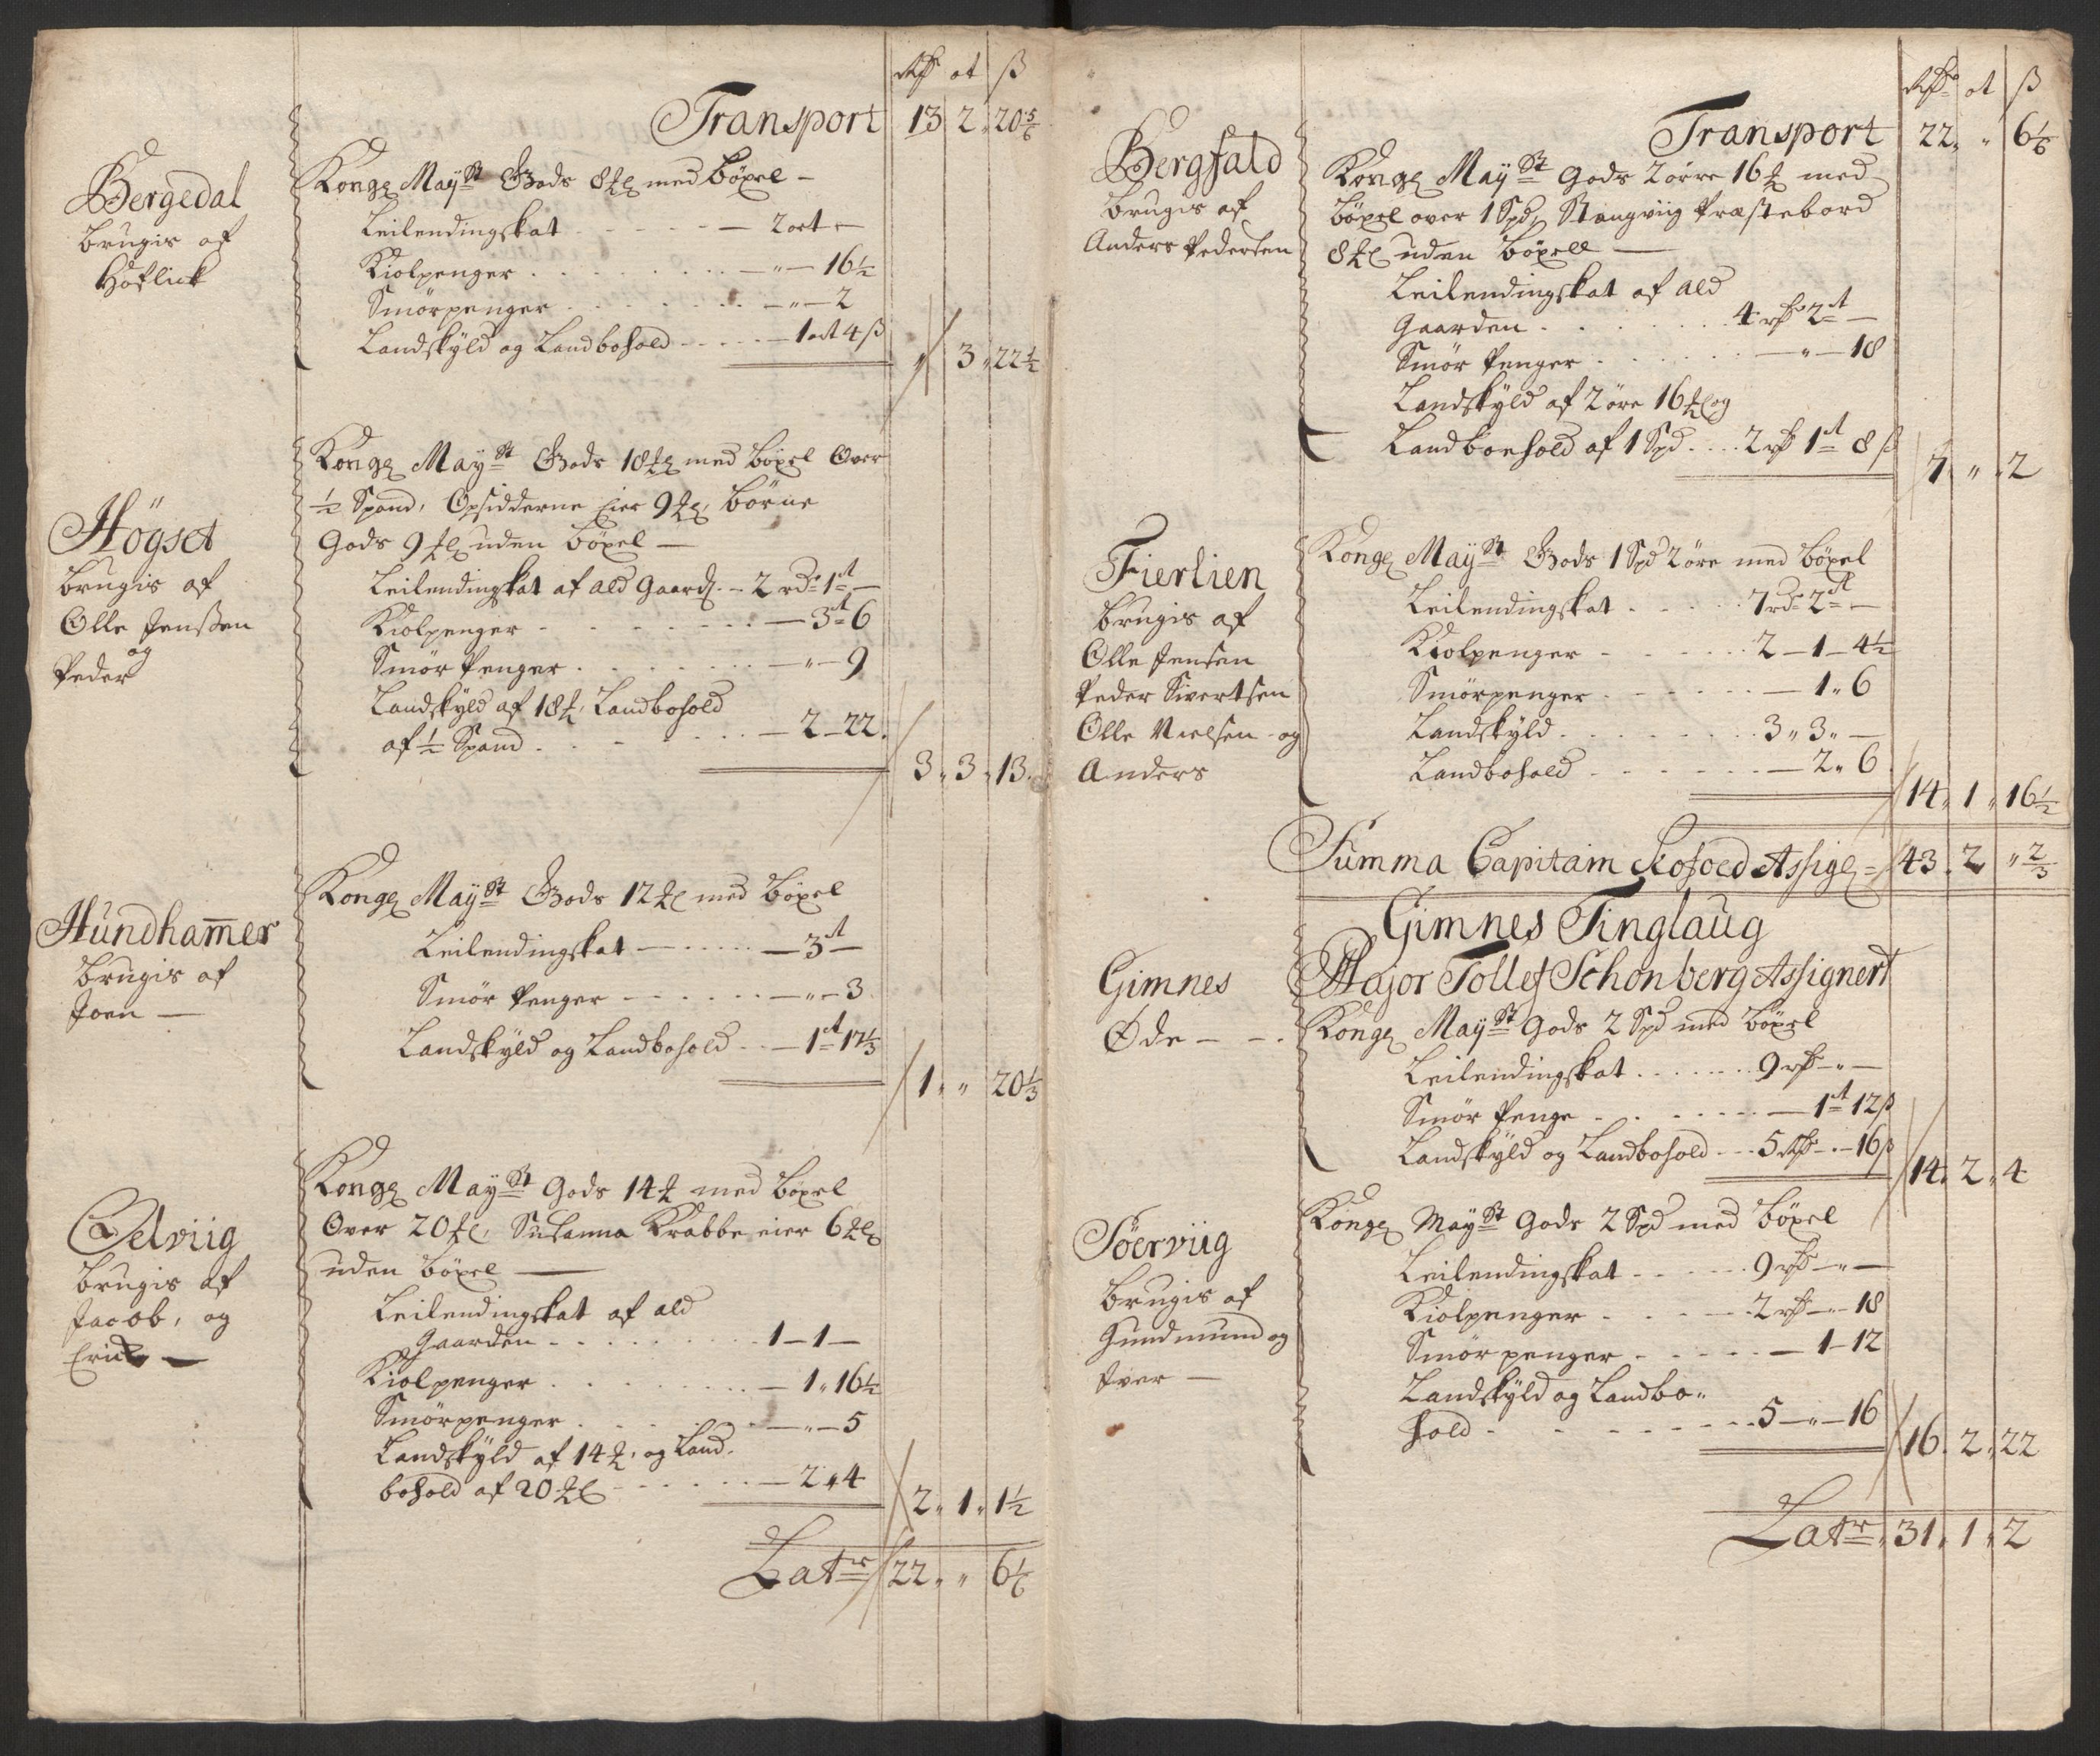 Rdr ort ß
Transport 13 2 20 5/6
Bergedal
brugis af
Kongl Mayst Gods 8 ℔ med böxel –
Leilendingskat – 2 ort –
Kiolpenger – " – 16 1/2
Smörpenger – " – 2
Landskyld og Landbohold – 1 ort 4 ß
" 3 " 22 1/2
Högset
brugis af
Olle Jenssen
og
Peder
Kongl Mayst Gods 18 ℔ med böxel Over
1/2 Spand, Opsidderne Eier 9 ℔, börne
Gods 9 ℔ uden böxel –
Leilendingskat af ald Gaard – 2 rdr 1 ort –
Kiolpenger – 3 ort 6
Smör Penger – " – 9
Landskyld af 18 ℔, Landbohold
af 1/2 Spand – 2 – 22
3 " 3 " 13
Hundham̄er
brugis af
Joen –
Kongl Mayst Gods 12 ℔ med böxel
Leilendingskat – 3 ort –
Smör Penger – " – 3
Landskyld og Landbohold – 1 ort 17 1/3
1 " " 20 1/3
brugis af
Jacob, og
Erich –
Kongl Mayst Gods 14 ℔ med böxel
Over 20 ℔, Susanna Krabbe eier 6 ℔
uden böxel –
Leilendingskat af ald
Gaarden – 1 – 1 –
Kiolpenger – 1 " 16 1/2
Smörpenger – " – 5
Landskyld af 14 ℔, og Land-
bohold af 20 ℔ – 2 " 4
2 " 1 " 1 1/2
Latr 22 " " 6 1/6
Rdr ort ß
Transport 22 " " 6 1/6
Bergfald
brugis af
Anders Pedersen
Kongl Mayst Gods 2 örre 16 ℔ med
böxel over 1 Spd, Stangviig Præstebord
8 ℔ uden böxell –
Leilendingskat af ald
Gaarden 4 rdr 2 ort –
Smör Penger – " – 18
Landskyld af 2 öre 16 ℔ og
Landboehold af 1 Spd 2 rdr 1 ort 8 ß
7 " " 2
Fierlien
brugis af
Olle Jensen
Peder Sivertsen
Olle Nielsen og
Anders
Kongl Mayst Gods 1 Spd 2 öre med böxel
Leilendingskat 7 rdr 2 ort –
Kiolpenger 2 – 1 – 4 1/2
Smörpenger – 1 " 6
Landskyld 3 " 3 " –
Landbohold – 2 " 6
14 " 1 " 16 1/2
Summa Capitain Kofoed Assigl = 43 2 " 2/3
Gimnes Tinglaug
Major Tollef Schonberg Assignert
Gimnes
Øde – –
Kongl Mayst Gods 2 Spd med böxel
Leilendingskat 9 rdr – " –
Smör Penge – 1 ort 12 ß
Landskyld og Landbohold 5 Rdr – " – 16 ß
14 " 2 " 4
Söerviig
brugis af
Gundmund og
Iver –
Kongl Mayst Gods 2 Spd med böxel
Leilendingskat 9 rdr – " –
Kiolpenger 2 rdr – " – 18
Smör penger – 1 – 12
Landskyld og Landbo-
hold 5 – " – 16
16 " 2 " 22
Latr 31 " 1 " 2